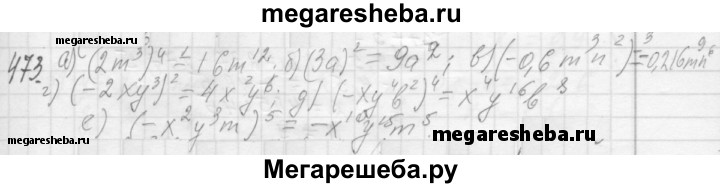 megaresheba.ru
473. а) (2m³)⁴ = 16m¹². б) (3a)² = 9a²; в) (-0,6m³n²)³ = -0,216m⁹n⁶
г) (-2xy³)² = 4x²y⁶. д) (-xy⁴b²)⁴ = x⁴y¹⁶b⁸
е) (-x²y³m)⁵ = -x¹⁰y¹⁵m⁵
www.megaresheba.ru
www.megaresheba.ru
www.megaresheba.ru
Мегарешеба.ру